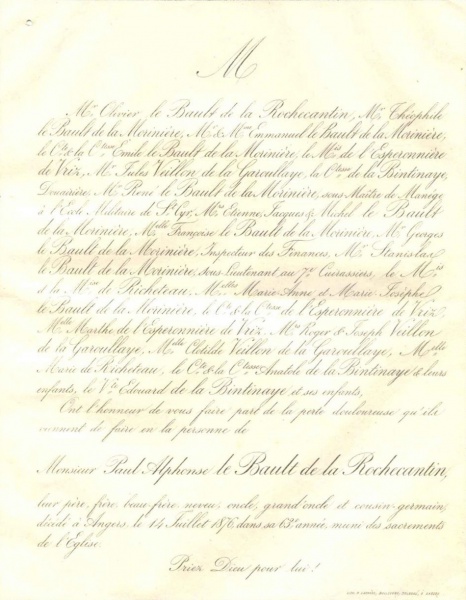 M
Mr Olivier le Bault de la Rochecantin, Mr Théophile
le Bault de la Morinière, Mr & Mme Emmanuel le Bault de la Morinière,
le Cte & la Ctesse Emile le Bault de la Morinière, le Mis de l'Esperonnière
de Vriz, Mr Jules Veillon de la Garoullaye, la Ctesse de la Bintinaye
Douairière, Mr René le Bault de la Morinière, sous Maître de Manège
à l'Ecole Militaire de St Cyr, Mrs Etienne, Jacques & Michel le Bault
de la Morinière, Melle Françoise le Bault de la Morinière, Mr Georges
le Bault de la Morinière, Inspecteur des Finances, Mr Stanislas
le Bault de la Morinière, sous Lieutenant au 7e Cuirassiers, le Mis
et la Mise de Richeteau, Melles Marie-Anne et Marie-Josèphe
le Bault de la Morinière, le Cte & la Ctesse de l'Esperonnière de Vriz,
Melle Marthe de l'Esperonnière de Vriz, Mrs Roger & Joseph Veillon
de la Garoullaye, Melle Clotilde Veillon de la Garoullaye, Melle
Marie de Richeteau, le Cte & la Ctesse Anatole de la Bintinaye & leurs
enfants, le Vte Edouard de la Bintinaye et ses enfants,
Ont l'honneur de vous faire part de la perte douloureuse qu'ils
viennent de faire en la personne de
Monsieur Paul Alphonse le Bault de la Rochecantin,
leur père, frère, beau-frère, neveu, oncle, grand'oncle et cousin-germain,
décédé à Angers, le 14 Juillet 1876 dans sa 63e année, muni des sacrements
de l'Eglise.
Priez Dieu pour lui!